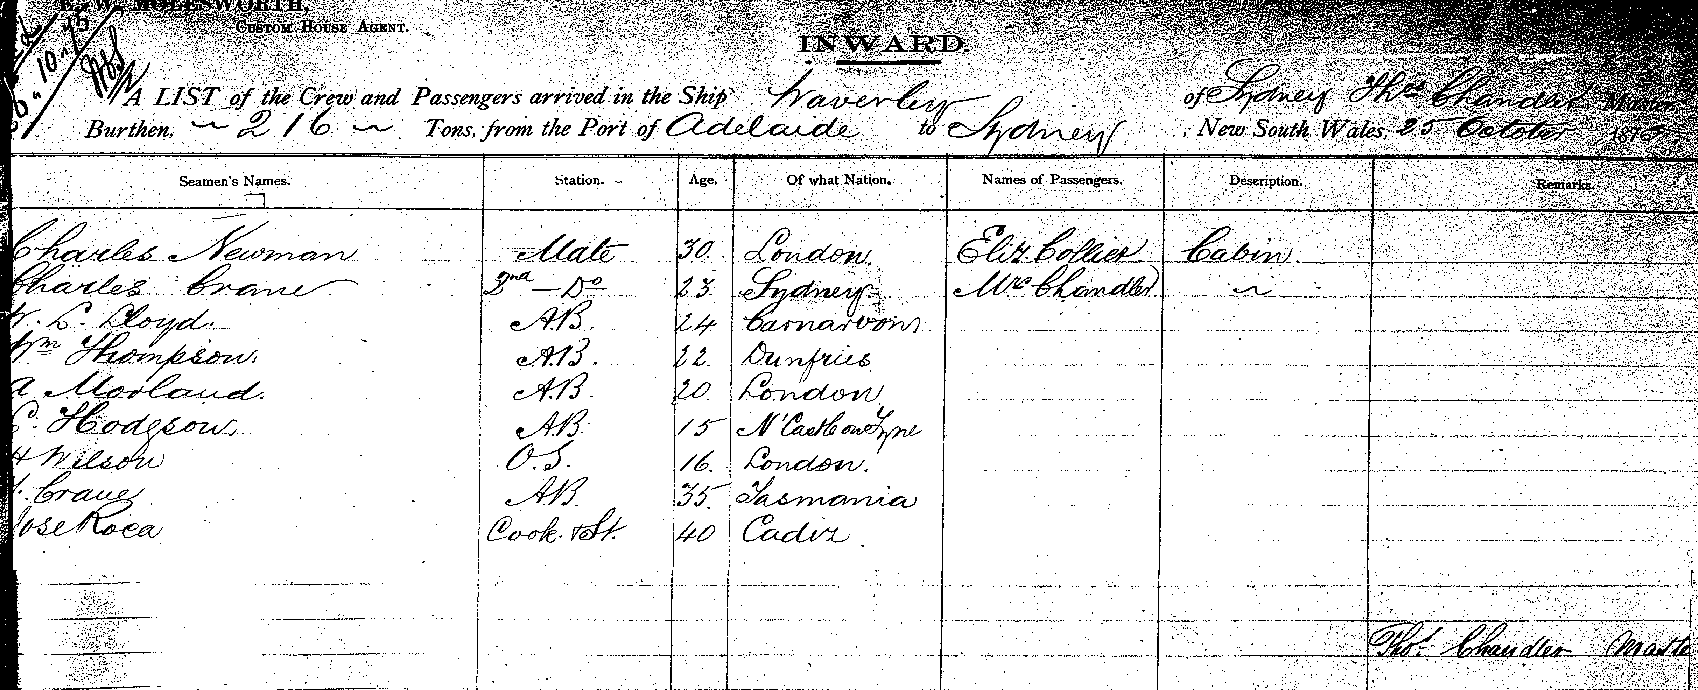 E. W. MOLESWORTH,
CUSTOM HOUSE AGENT.
INWARD.
A LIST of the Crew and Passengers arrived in the Ship Waverley of Sydney Thos Chandler Master
Burthen, 216 Tons, from the Port of Adelaide to Sydney, New South Wales, 25 October
Seamen's Names. Station. Age. Of what Nation. Names of Passengers. Description. Remarks.
Charles Newman Mate 30 London. Eliz Collier Cabin
Charles Crane 2nd — Do 23 Sydney Mrs Chandler
W. L. Lloyd. A.B. 24 Carnarvon
Wm Thompson. A.B. 22. Dunfries
A Morland. A.B 20. London
C. Hodgson. AB 15 N'Castle on Tyne
H Wilson O.S. 16. London.
Crane A.B 35. Tasmania
Jose Roca Cook & St. 40 Cadiz
Thos. Chandler Master